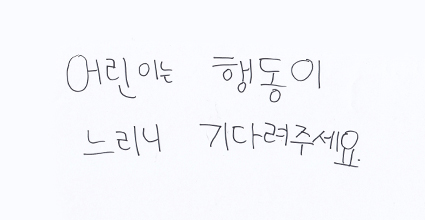 어린이는 행동이
느리니 기다려주세요.